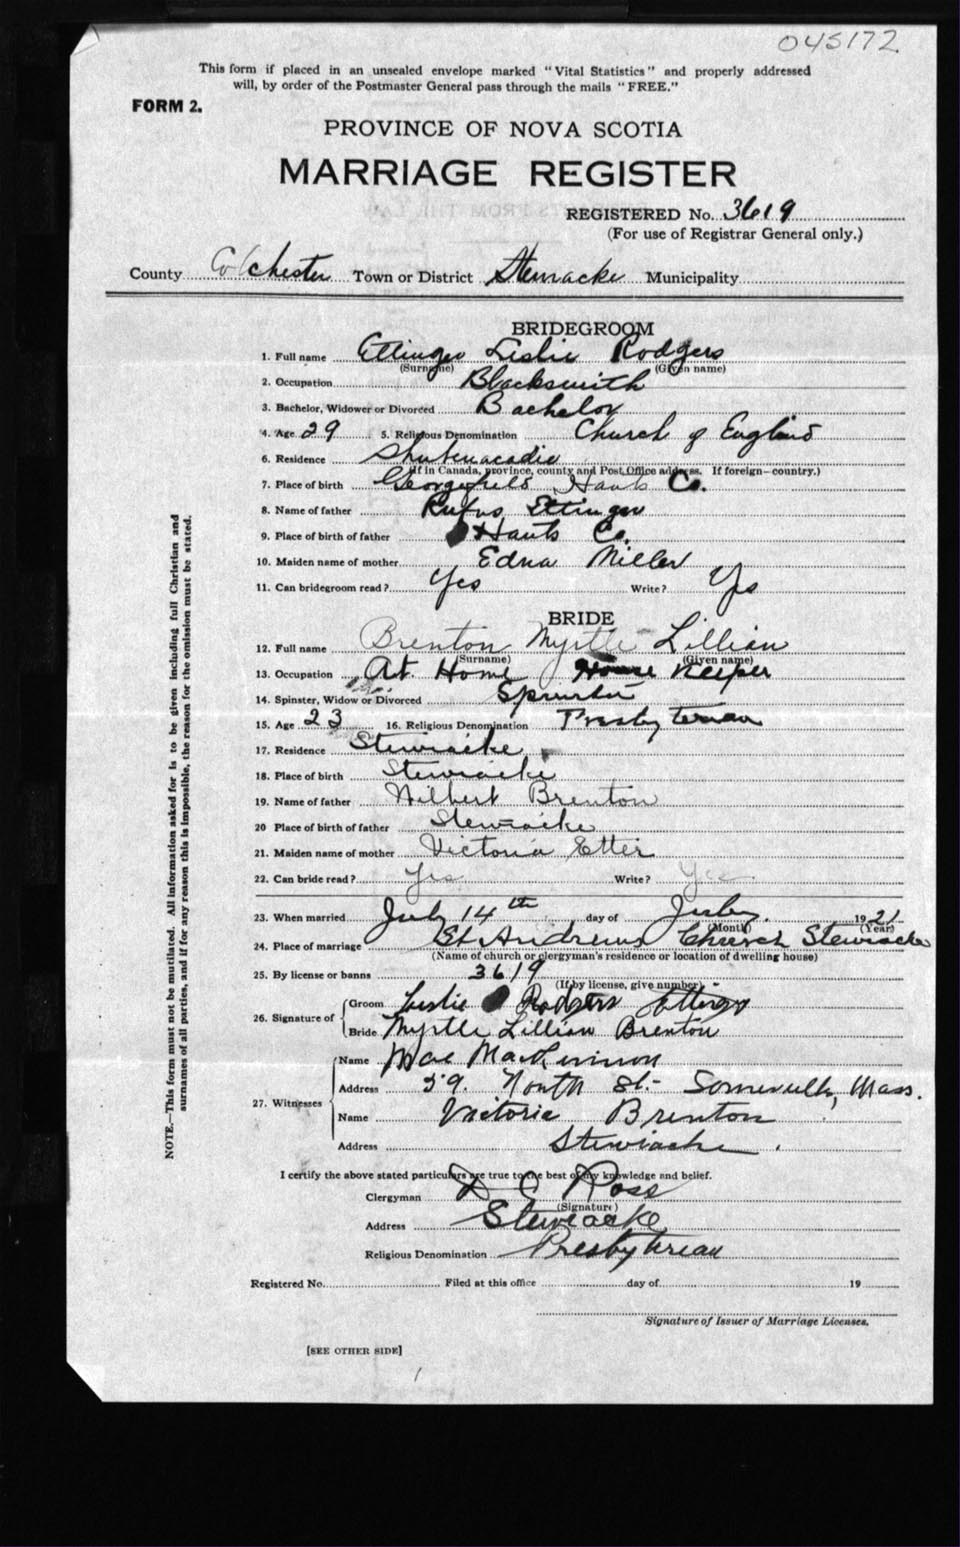 045172
This form if placed in an unsealed envelope marked "Vital Statistics" and properly addressed
will, by order of the Postmaster General pass through the mails "FREE."
FORM 2.
PROVINCE OF NOVA SCOTIA
MARRIAGE REGISTER
REGISTERED No. 3619
(For use of Registrar General only.)
County Colchester Town or District Stewiacke Municipality
BRIDEGROOM
1. Full name Ettinger Leslie Rodgers
(Surname) (Given name)
2. Occupation Blacksmith
3. Bachelor, Widower or Divorced Bachelor
4. Age 29 5. Religious Denomination Church of England
6. Residence Shubenacadie
(If in Canada, province, county and Post Office address. If foreign—country.)
7. Place of birth Georgefield Hants Co.
8. Name of father Rufus Ettinger
9. Place of birth of father Hants Co.
10. Maiden name of mother Edna Miller
11. Can bridegroom read? Yes Write? Yes
BRIDE
12. Full name Brenton Myrtle Lillian
(Surname) (Given name)
13. Occupation At Home House Keeper
14. Spinster, Widow or Divorced Spinster
15. Age 23 16. Religious Denomination Presbyterian
17. Residence Stewiacke
18. Place of birth Stewiacke
19. Name of father Wilbert Brenton
20 Place of birth of father Stewiacke
21. Maiden name of mother Victoria Etter
22. Can bride read? Yes Write? Yes
23. When married July 14th day of July 1921
(Month) (Year)
24. Place of marriage St Andrews Church Stewiacke
(Name of church or clergyman's residence or location of dwelling house)
25. By license or banns 3619
(If by license, give number)
26. Signature of
Groom Leslie Rodgers Ettinger
Bride Myrtle Lillian Brenton
27. Witnesses
Name Mae MacKinnon
Address 59. North St.- Somerville, Mass.
Name Victoria Brenton
Address Stewiacke.
I certify the above stated particulars are true to the best of my knowledge and belief.
Clergyman D C Ross
(Signature)
Address Stewiacke
Religious Denomination Presbyterian
Registered No. Filed at this office day of 19
Signature of Issuer of Marriage Licenses.
[SEE OTHER SIDE]
NOTE.—This form must not be mutilated. All information asked for is to be given including full Christian and
surnames of all parties, and if for any reason this is impossible, the reason for the omission must be stated.